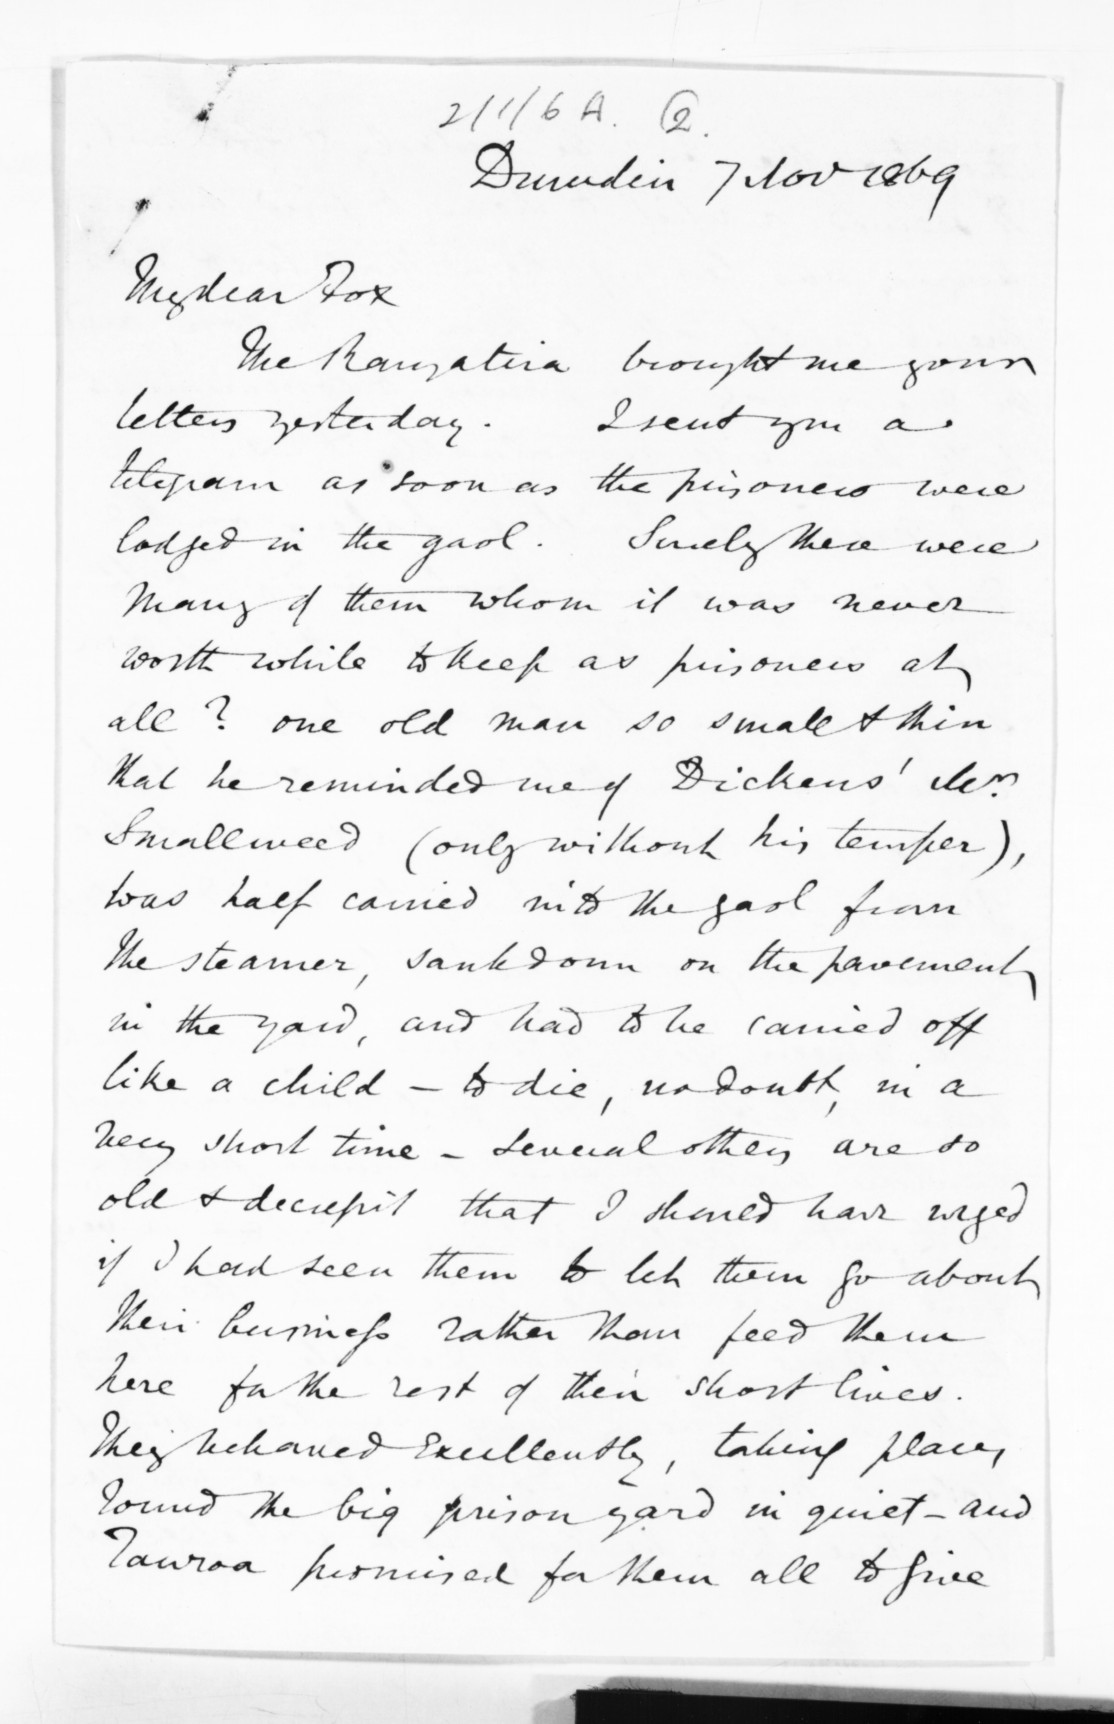 2/1/6 A. 2.
Dunedin 7 Nov 1869
My dear Fox
The Rangatira brought me your
letters yesterday. I sent you a
telegram as soon as the prisoners were
lodged in the gaol. Surely there were
many of them whom it was never
worth while to keep as prisoners at
all? one old man so small & thin
that he reminded me of Dickens' Mr.
Smallweed (only without his temper),
was half carried into the gaol from
the steamer, sank down on the pavement
in the yard, and had to be carried off
like a child - to die, no doubt, in a
very short time - Several others are so
old & decrepit that I should have urged
if I had seen them to let them go about
their business rather than feed them
here for the rest of their short lives.
They behaved Excellently, taking places
round the big prison yard in quiet - and
Tauroa promised for them all to give